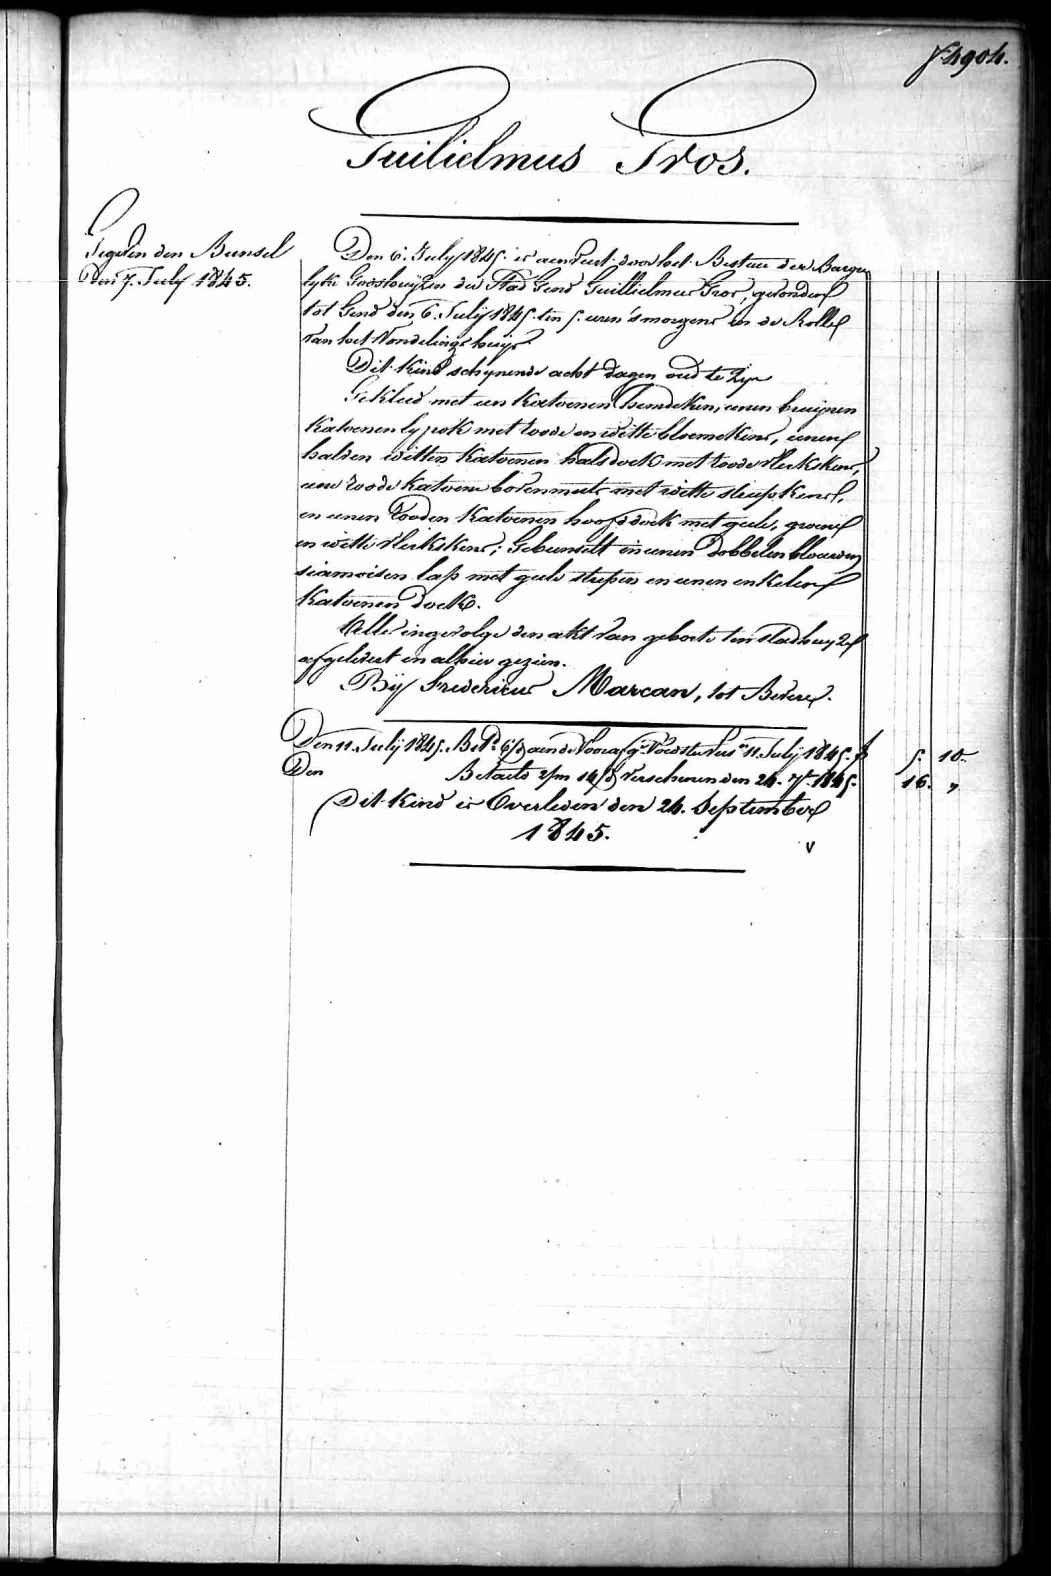 4904.
Guilielmus Gros.
Gegeven den Bunsel
Den 7. July 1845.
Den 6. July 1845. is aenveert door het Bestuer der Burger
lyke Godshuyzen der Stad Gend Guillielmus Gros, gevonden
tot Gend den 6. Julij 1845. ten 5. uren 's morgens in de Rolle
van het Vondelings huys
Dit Kind schynende acht dagen oud te Zyn
Gekleed met een Katoenen hemdeken, eenen bruynen
Katoenen lyfrok met roode en witte bloemekens, eenen
halven witten Katoenen halsdoek met roode vlekskens,
eene roode katoene bovenmuts met witte streepkens,
en eenen rooden Katoenen hoofddoek met geele, groene
en witte vlekskens; Gebunselt in eenen dobbelen blouwen
siamoisen lap met geele strepen en eenen enkelen
Katoenen doek.
Alles ingevolge den akt van geboorte ten stadhuyze
afgelevert en alhier gezien.
Bij Fredericus Marcan, tot Bevere.
Den 11. Julij 1845. Bet. aen de Voorag. Voedster 11 Julij 1845. f 5. 10.
Den Betaelt 2/m Verschenen den 24. 7b. 1845. 16. "
Dit Kind is Overleden den 24. September
1845.
v